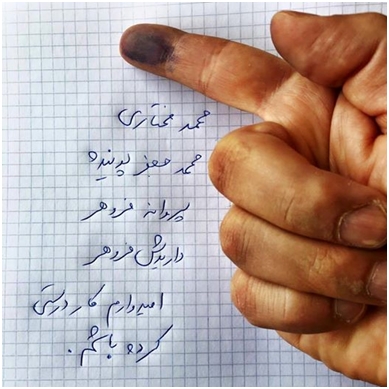 محمد مختاری
محمد جعفر پوینده
پروانه فروهر
داریوش فروهر
امیدوارم کار درستی
کرده باشم.